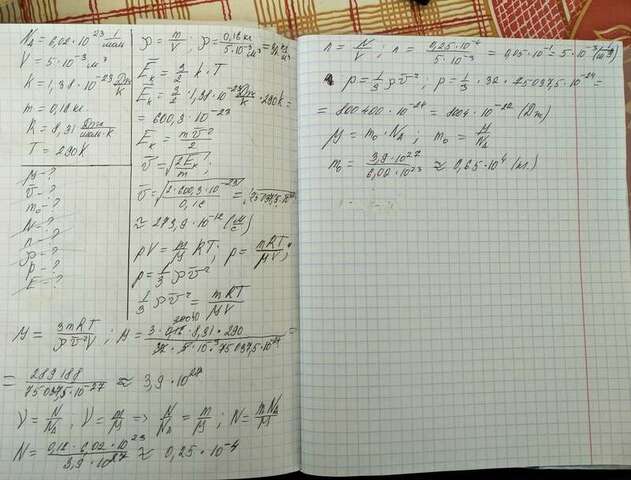 N_A = 6,02 · 10^23 1/моль
V = 5 · 10^-3 м³
k = 1,38 · 10^-23 Дж/К
m = 0,18 кг
R = 8,31 Дж/моль·К
T = 290К
μ - ?
v̄ - ?
m₀ - ?
N - ?
n - ?
ρ - ?
p - ?
E - ?
ρ = m/V ; ρ = 0,18 кг / 5·10^-3 м³
E_к = 3/2 k · T
E_к = 3/2 · 1,38 · 10^-23 Дж/К · 290К =
= 600,3 · 10^-23
E_к = m v̄² / 2
v̄ = √(2E_к / m) ;
v̄ = √(2 · 600,3 · 10^-23 / 0,16) =
≈ 273,9 · 10^-12 (м/с)
pV = m/μ RT ; p = mRT / μV ;
p = 1/3 ρ v̄²
1/3 ρ v̄² = mRT / μV
μ = 3mRT / ρ v̄² V ; μ = 3 · 0,18 · 8,31 · 290 / · 75037,5 · 10^-24 =
= 289188 / 75037,5 · 10^-27 ≈ 3,9 · 10^27
ν = N/N_A , ν = m/μ => N/N_A = m/μ ; N = mN_A / μ
N = 0,18 · 6,02 · 10^23 / 3,9 · 10^27 ≈ 0,25 · 10^-4
n = N/V ; n = 0,25 · 10^-4 / 5 · 10^-3 = 0,05 · 10^-1 = 5 · 10^-3
p = 1/3 ρ v̄² ; p = 1/3 · 32 · 75037,5 · 10^-24 =
= 800400 · 10^-24 = 8004 · 10^-22 (Дж)
μ = m₀ · N_A ; m₀ = μ/N_A
m₀ = 3,9 · 10^27 / 6,02 · 10^23 ≈ 0,65 · 10^4 (кг.)